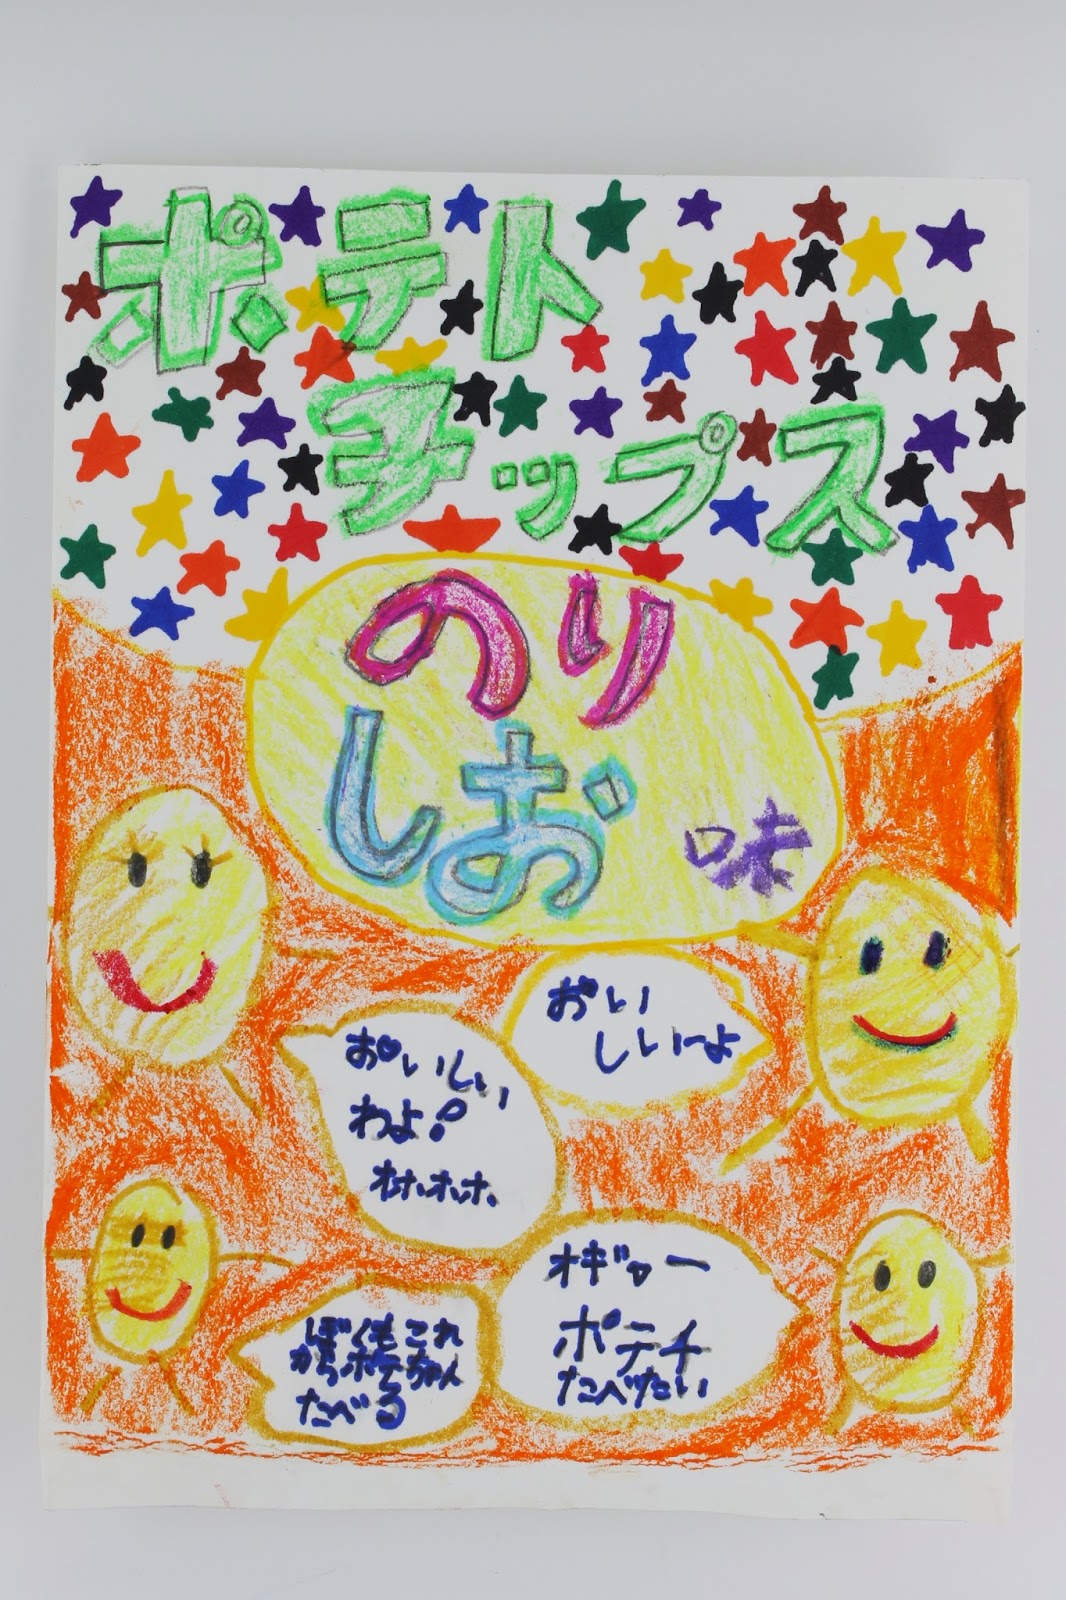 ポテト
チップス
のり
しお
味
おい
しいーよ
おいしい
わよ!
オホホホ.
オギャー
ポテチ
たべたい
ぼくもこれ
からポテちゃん
たべる